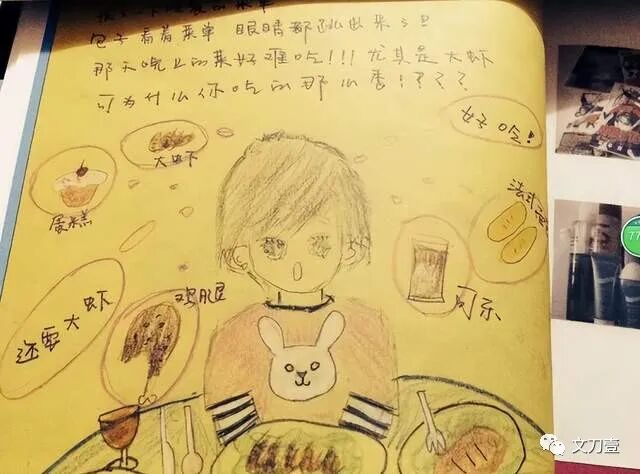 包子看着菜单 眼睛都跳出来了
那天晚上的菜好难吃!!! 尤其是大虾
可为什么你吃的那么香!???
好吃!
大虾
蛋糕
鸡腿
还要大虾
可乐
法式
文刀壹